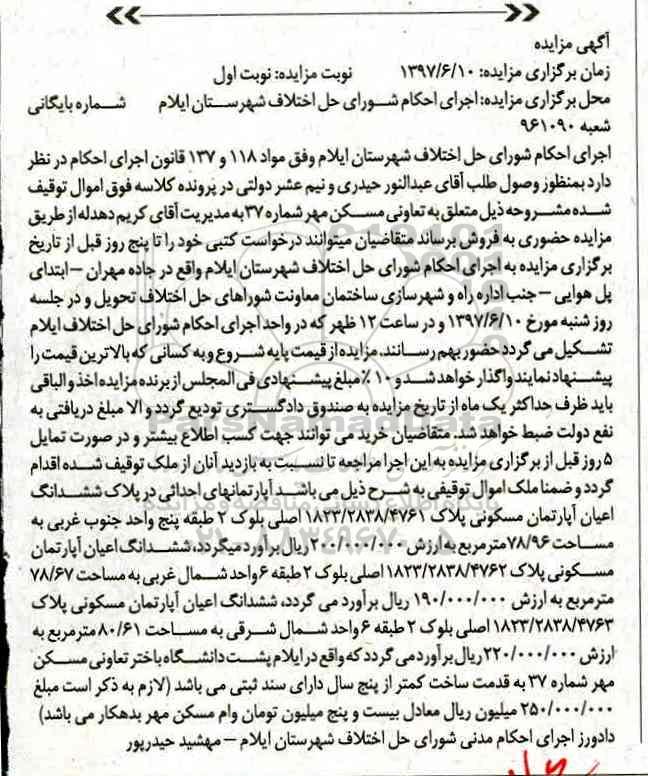 آگهی مزایده
زمان برگزاری مزایده: ۱۳۹۷/۶/۱۰ نوبت مزایده: نوبت اول
محل برگزاری مزایده: اجرای احکام شورای حل اختلاف شهرستان ایلام شماره بایگانی
شعبه ۹۶۱۰۹۰
اجرای احکام شورای حل اختلاف شهرستان ایلام وفق مواد ۱۱۸ و ۱۳۷ قانون اجرای احکام در نظر
دارد بمنظوز وصول طلب آقای عبدالنور حیدری و نیم عشر دولتی در پرونده کلاسه فوق اموال توقیف
شده مشروحه ذیل متعلق به تعاونی مسکن مهر شماره ۳۷ به مدیریت آقای کریم دهدله از طریق
مزایده حضوری به فروش برساند متقاضیان میتوانند درخواست کتبی خود را تا پنج روز قبل از تاریخ
برگزاری مزایده به اجرای احکام شورای حل اختلاف شهرستان ایلام واقع در جاده مهران – ابتدای
پل هوایی – جنب اداره راه و شهرسازی ساختمان معاونت شوراهای حل اختلاف تحویل و در جلسه
روز شنبه مورخ ۱۳۹۷/۶/۱۰ و در ساعت ۱۲ ظهر که در واحد اجرای احکام شورای حل اختلاف ایلام
تشکیل می گردد حضور بهم رسانند. مزایده از قیمت پایه شروع و به کسانی که بالاترین قیمت را
پیشنهاد نمایند واگذار خواهد شد و ۱۰٪ مبلغ پیشنهادی فی المجلس از برنده مزایده اخذ و الباقی
باید ظرف حداکثر یک ماه از تاریخ مزایده به صندوق دادگستری تودیع گردد و الا مبلغ دریافتی به
نفع دولت ضبط خواهد شد. متقاضیان خرید می توانند جهت کسب اطلاع بیشتر و در صورت تمایل
۵ روز قبل از برگزاری مزایده به این اجرا مراجعه تا نسبت به بازدید آنان از ملک توقیف شده اقدام
گردد و ضمنا ملک اموال توقیفی به شرح ذیل می باشد آپارتمانهای احداثی در پلاک ششدانگ
اعیان آپارتمان مسکونی پلاک ۱۸۲۳/۲۸۳۸/۴۷۶۱ اصلی بلوک ۲ طبقه پنج واحد جنوب غربی به
مساحت ۷۸/۹۶ متر مربع به ارزش ۲۰۰/۰۰۰/۰۰۰ ریال برآورد میگردد، ششدانگ اعیان آپارتمان
مسکونی پلاک ۱۸۲۳/۲۸۳۸/۴۷۶۲ اصلی بلوک ۲ طبقه ۶ واحد شمال غربی به مساحت ۷۸/۶۷
مترمربع به ارزش ۱۹۰/۰۰۰/۰۰۰ ریال برآورد می گردد، ششدانگ اعیان آپارتمان مسکونی پلاک
۱۸۲۳/۲۸۳۸/۴۷۶۳ اصلی بلوک ۲ طبقه ۶ واحد شمال شرقی به مساحت ۸۰/۶۱ مترمربع به
ارزش ۲۲۰/۰۰۰/۰۰۰ ریال برآورد می گردد که واقع در ایلام پشت دانشگاه باختر تعاونی مسکن
مهر شماره ۳۷ به قدمت ساخت کمتر از پنج سال دارای سند ثبتی می باشد (لازم به ذکر است مبلغ
۲۵۰/۰۰۰/۰۰۰ میلیون ریال معادل بیست و پنج میلیون تومان وام مسکن مهر بدهکار می باشد)
دادورز اجرای احکام مدنی شورای حل اختلاف شهرستان ایلام – مهشید حیدرپور
ParsNamadData